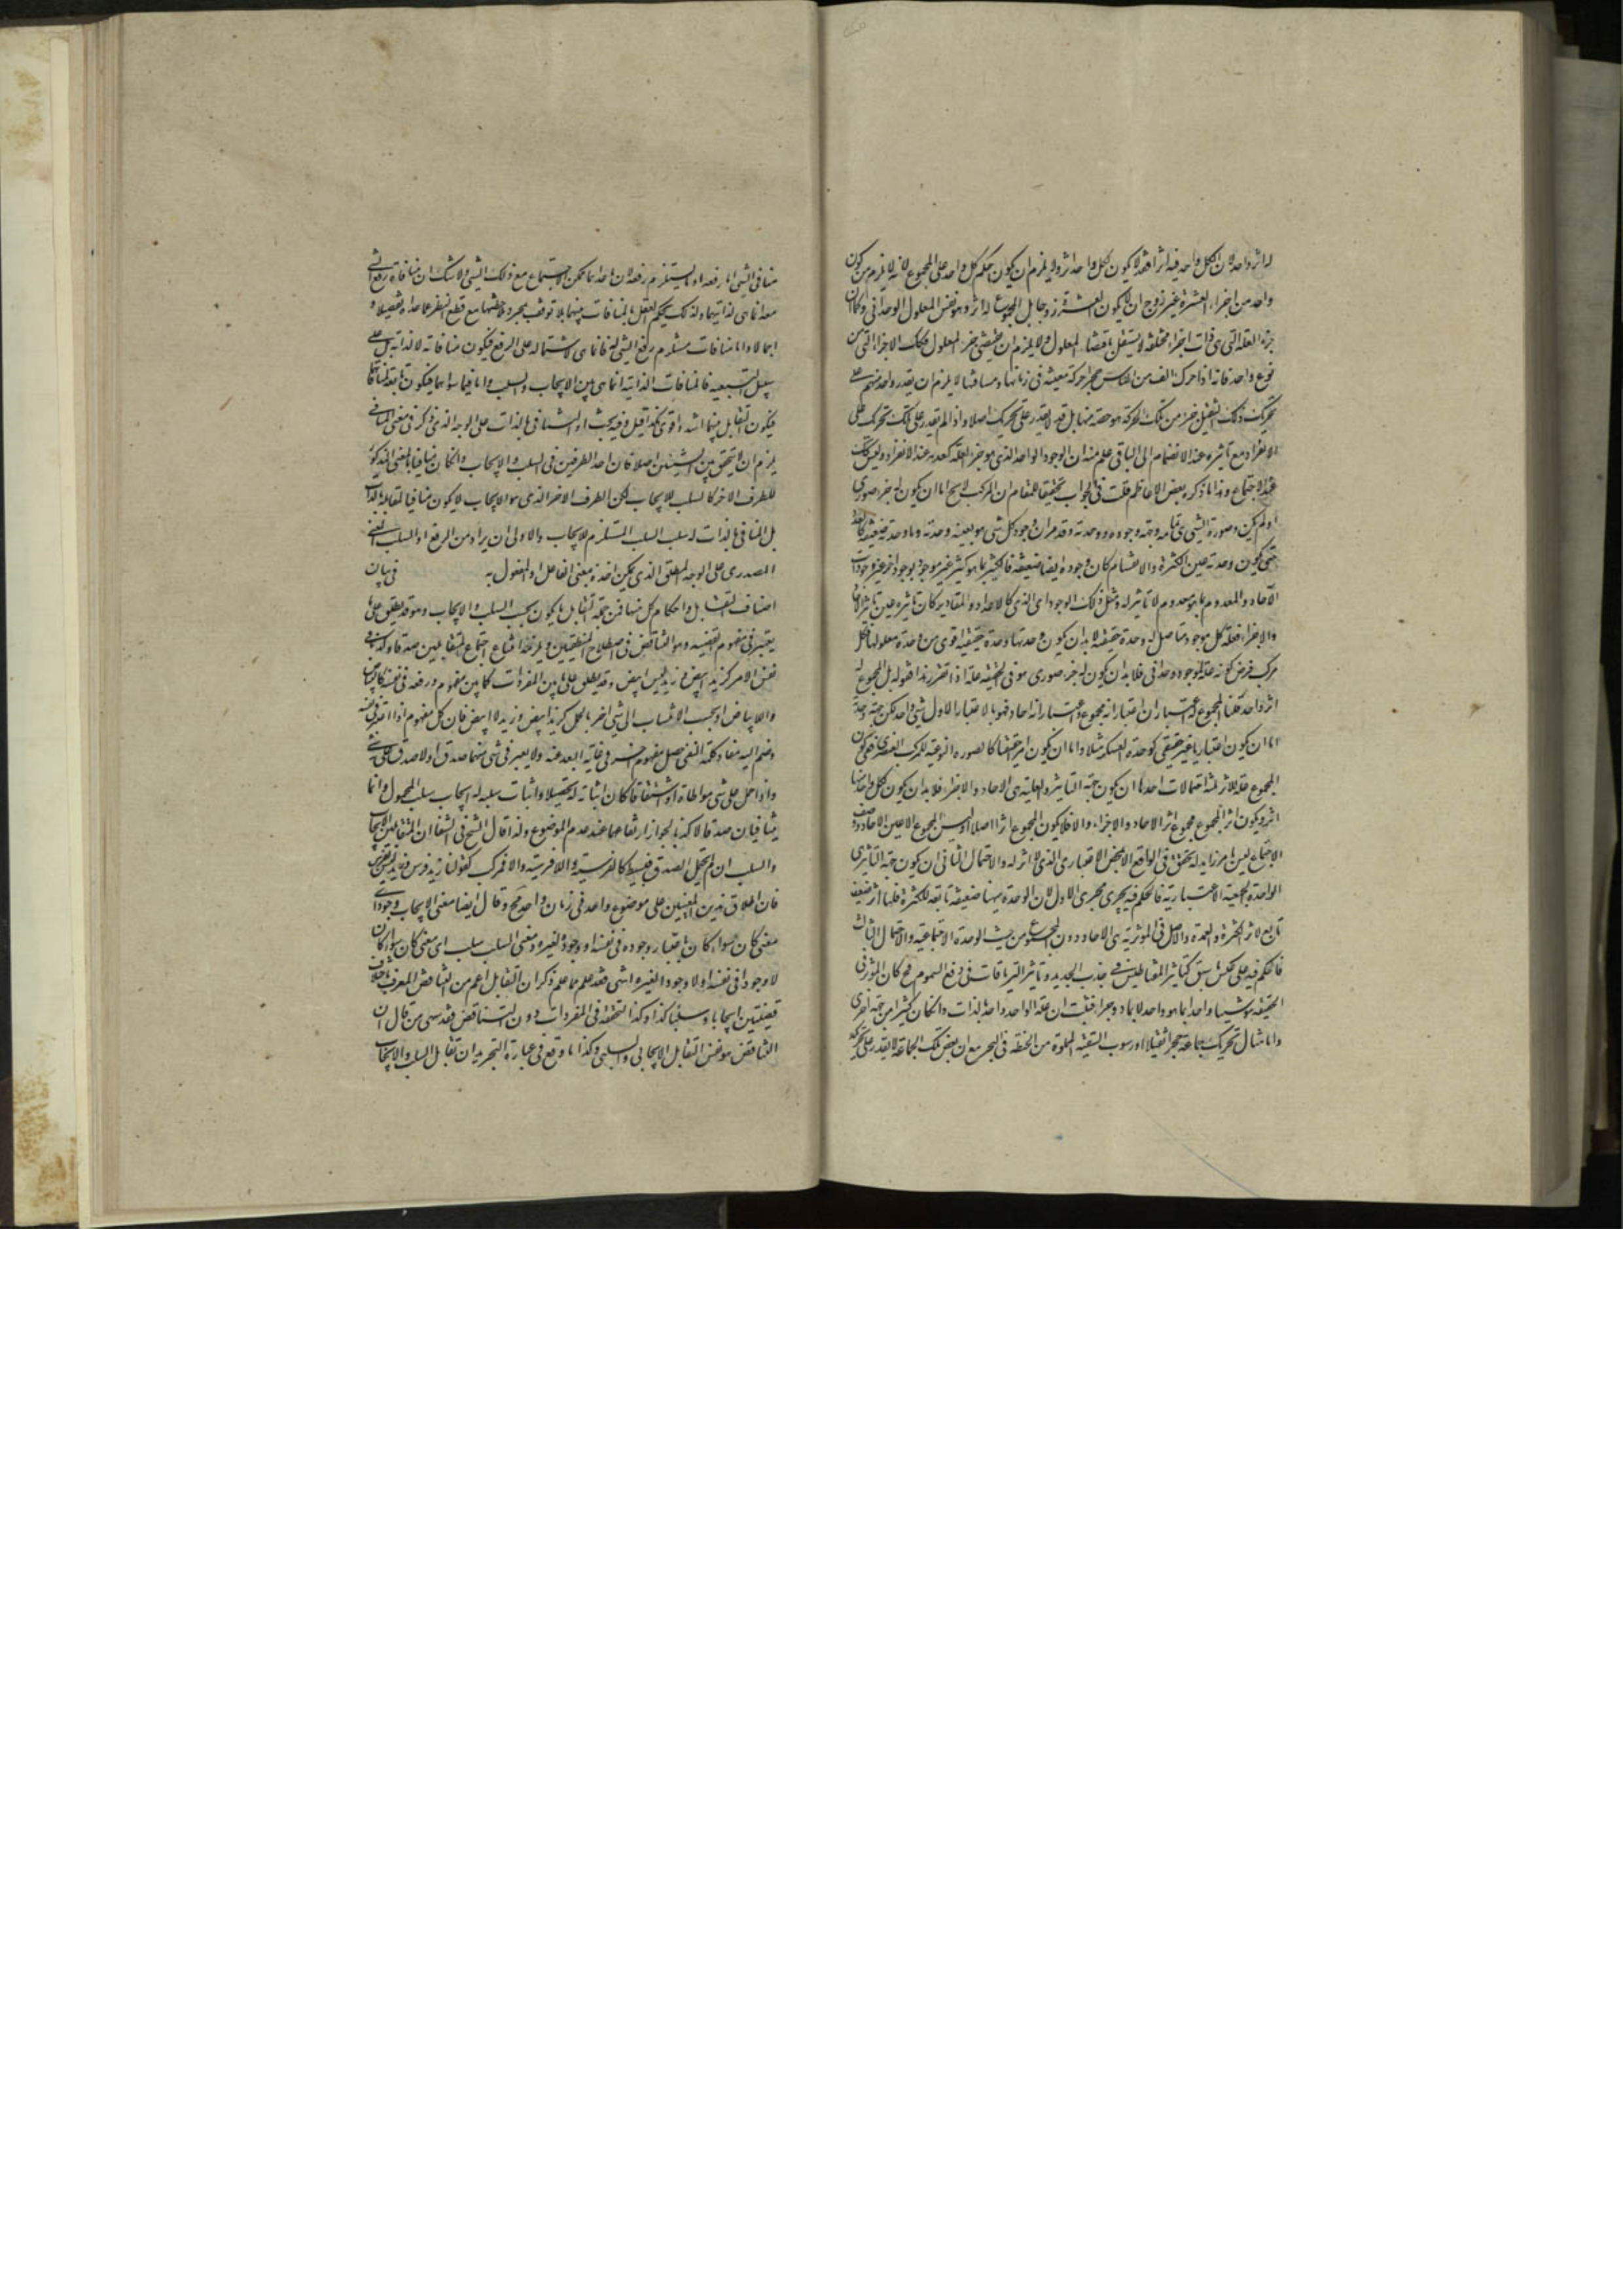 له اثر واحد لان لكل واحد فيه اثرا فقد لا يكون لكل واحد اثر ولا يلزم ان يكون حكم كل واحد على المجموع لانه لا يلزم من كون
واحد من اجزاء العشرة غير زوج ان لا يكون العشرة زوجا بل المجموع له اثر وهو نفس المعلول الوحدانى وكما ان
جزء العلة التى هى ذات اجزاء مختلفة لا يستقل باقتضاء المعلول ولا يلزم ان يقتضى جزء المعلول فكذلك الاجزاء التى من
نوع واحد فانه اذا حرك الف من الناس حجرا حركة معينة فى زمانها ومسافتها لا يلزم ان يقدر واحد منهم على
تحريك ذلك الثقيل جزء من تلك الحركة هو حصته منها بل قد لا يقدر على تحريكه اصلا واذا لم يقدر على ذلك تحركه على
الانفراد مع تاثيره عند الانضمام الى الباقى علم منه ان الوجود الواحد الذى هو جزء العلة كعدمه عند الانفراد وليس كذلك
عند الاجتماع وهذا ما ذكره بعض الاعاظم قلت فى الجواب تحقيقا للمقام ان المركب لا يخ اما ان يكون له جزء صورى
او لم يكن وصورة الشى تمامه وجهة وجوده ووحدته وقد مر ان وجود كل شى هو بعينه وحدته وما وحدته ضعيفة كالعدد
حتى يكون وحدته عين الكثرة والانقسام كان وجوده ايضا ضعيفة فالكثير بما هو كثير غير موجود بوجود اخر غير وجودات
الآحاد والمعدوم بما هو معدوم لا تاثير له فمثل ذلك الوجود اى الذى كالاعداد والمقادير كان تاثيره عين تاثير الآحاد
والاجزاء فعلة كل موجود متاصل له وحدة حقيقة لا بد ان يكون وحدتها وحدة حقيقية اقوى من وحدة معلولها فكل
مركب فرض كونه علة لموجود وحدانى فلا بد ان يكون له جزء صورى هو فى الحقيقة علة اذا تقرر هذا فقوله بل المجموع له
اثر واحد قلنا المجموع له اعتباران اعتبار انه مجموع واعتبار انه احاد فهو بالاعتبار الاول شى واحد لكن جهة وحدته
اما ان يكون اعتباريا غير حقيقى كوحدة العسكر مثلا واما ان يكون امرا حقيقيا كالصورة النوعية للمركب العنصرى فيكون
المجموع علة لاثر ثلثة احتمالات احدها ان يكون جهة التاثير والعلية هى الاحاد والاجزاء فلا بد ان يكون لكل واحد منها
اثر ويكون اثر المجموع مجموع اثر الاحاد والاجزاء والا فلا يكون المجموع اثرا اصلا اذ ليس المجموع الا عين الاحاد ووصف
الاجتماع ليس بامر زايد له تحقق فى الواقع الا بمحض الاعتبار الذى لا اثر له والاحتمال الثانى ان يكون جهة التاثير هى
الواحدة الجمعية الاعتبارية فالحكم فيه يجرى مجرى الاول لان الوحدة ههنا ضعيفة تابعة للكثرة فلها اثر ضعيف
تابع لاثر الكثرة والعمدة والاصل فى المؤثرية هى الاحاد دون المجموع من حيث الوحدة الاجتماعية والاحتمال الثالث
فالحكم فيه على عكس سبق كتاثير المقناطيس فى جذب الحديد وتاثير الترياقات فى دفع السموم فح كان المؤثر فى
الحقيقة هو شيئا واحدا بما هو واحد لا بماد وجزاء فثبت ان علة الواحد واحدة بالذات وان كان كثيرا من جهة اخرى
واما مثال تحريك جماعة حجرا ثقيلا او رسوب السفينة المملوة من الحنطة فى البحر مع ان بعض تلك الجماعة لا يقدر على تحريكه
منافى الشى اما رفعه او ما يستلزم رفعه لان ما عداهما يمكن الاجتماع مع ذلك الشى ولا شك ان منافاة رفع الشى
معه انما هى لذاتيهما ولذلك يحكم العقل بالمنافات بينهما بلا توقف بمجرد ملاحظتهما مع قطع النظر عما عداه تفصيلا و
اجمالا واما منافات مستلزم رفع الشى له فانما هى لاشتماله على الرفع فيكون منافاته لا لذاته بل على
سبيل التبعية فالمنافات الذاتية انما هى بين الايجاب والسلب واما فيما سواهما فيكون تابعة لمنافاتهما
فيكون التقابل بينهما اشد واقوى هكذا قيل وفيه بحث اذ التنافى بالذات على الوجه الذى ذكر فى معنى المنافى
يلزم ان لا يتحقق بين الشيئين اصلا فان احد الطرفين فى السلب والايجاب وان كان منافيا بالمعنى المذكور
للطرف الاخر كالسلب للايجاب لكن الطرف الاخر الذى هو الايجاب لا يكون منافيا لمقابله بالذات
بل المنافى بالذات له سلب السلب المستلزم للايجاب والاولى ان يراد من الرفع او السلب المعنى
المصدرى على الوجه المطلق الذى يمكن اخذه بمعنى الفاعل او المفعول به فى بيان
اصناف التقابل واحكام كل منها فمن جملة التقابل ما يكون بحسب السلب والايجاب وهو قد يطلق على ما
يعتبر فى مفهوم القضية وهو التناقض فى اصطلاح المنطقيين ويلزمه امتناع اجتماع المتقابلين صدقا وكذبا فى
نفس الامر كزيد ابيض وزيد ليس ابيض وقد يطلق على ما بين المفردات كما بين مفهوم ورفعه فى نفسه كالبياض
واللابياض او بحسب الانتساب الى شى اخر بالحمل كزيد ابيض وزيد لا ابيض فان كل مفهوم اذا اعتبر فى نفسه
وضم اليه مفاد كلمة النفى حصل مفهوم اخر فى غاية البعد عنه ولا يعبر فى شى منهما صدق او لا صدق على شى
واذا حمل على شى مواطاة او اشتقاقا كان اثباته له تحصيلا واثبات سلبه له ايجاب سلب المحمول وانما
يتنافيان صدقا لا كذبا لجواز ارتفاعهما عند عدم الموضوع ولذا قال الشيخ فى الشفا ان المتقابلين بالايجاب
والسلب ان لم يحتمل الصدق فبسيط كالفرسية واللافرسية والا فمركب كقولنا زيد فرس وزيد ليس بفرس
فان اطلاق هذين المعنيين على موضوع واحد فى زمان واحد مح وقال ايضا معنى الايجاب وجود اى
معنى كان سواء كان باعتبار وجوده فى نفسه او وجوده لغيره ومعنى السلب سلب اى معنى كان سواء كان
لا وجودا فى نفسه او لا وجودا لغيره انتهى فقد علم مما ذكر ان التقابل اعم من التناقض المعرف باختلاف
قضيتين ايجابا وسلبا كذا وكذا لتحققه فى المفردات دون التناقض فقد سهى من قال ان
التناقض هو نفس التقابل الايجابى والسلبى وكذا ما وقع فى عبارة التجريد ان تقابل السلب والايجاب